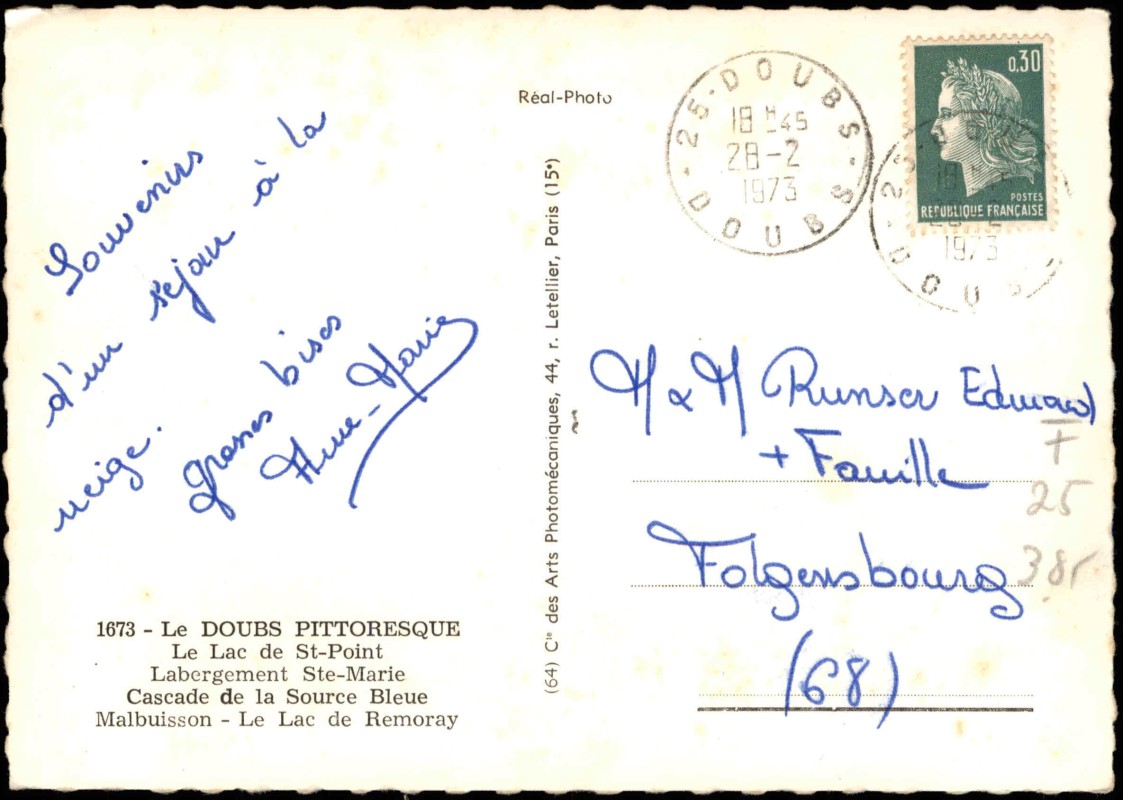 Souvenirs
d'un sejour à la
neige.
grosses bises
Anne-Marie
1673 - Le DOUBS PITTORESQUE
Le Lac de St-Point
Labergement Ste-Marie
Cascade de la Source Bleue
Malbuisson - Le Lac de Remoray
Réal-Photo
(64) Cie des Arts Photomécaniques, 44, r. Letellier, Paris (15e)
25 - DOUBS - DOUBS
18 H 45
28-2
1973
0,30
POSTES
REPUBLIQUE FRANÇAISE
25 - DOUBS
18 H
28-2
1973
M & M Runser Edouard
+ Famille
Folgensbourg
(68)
F
25